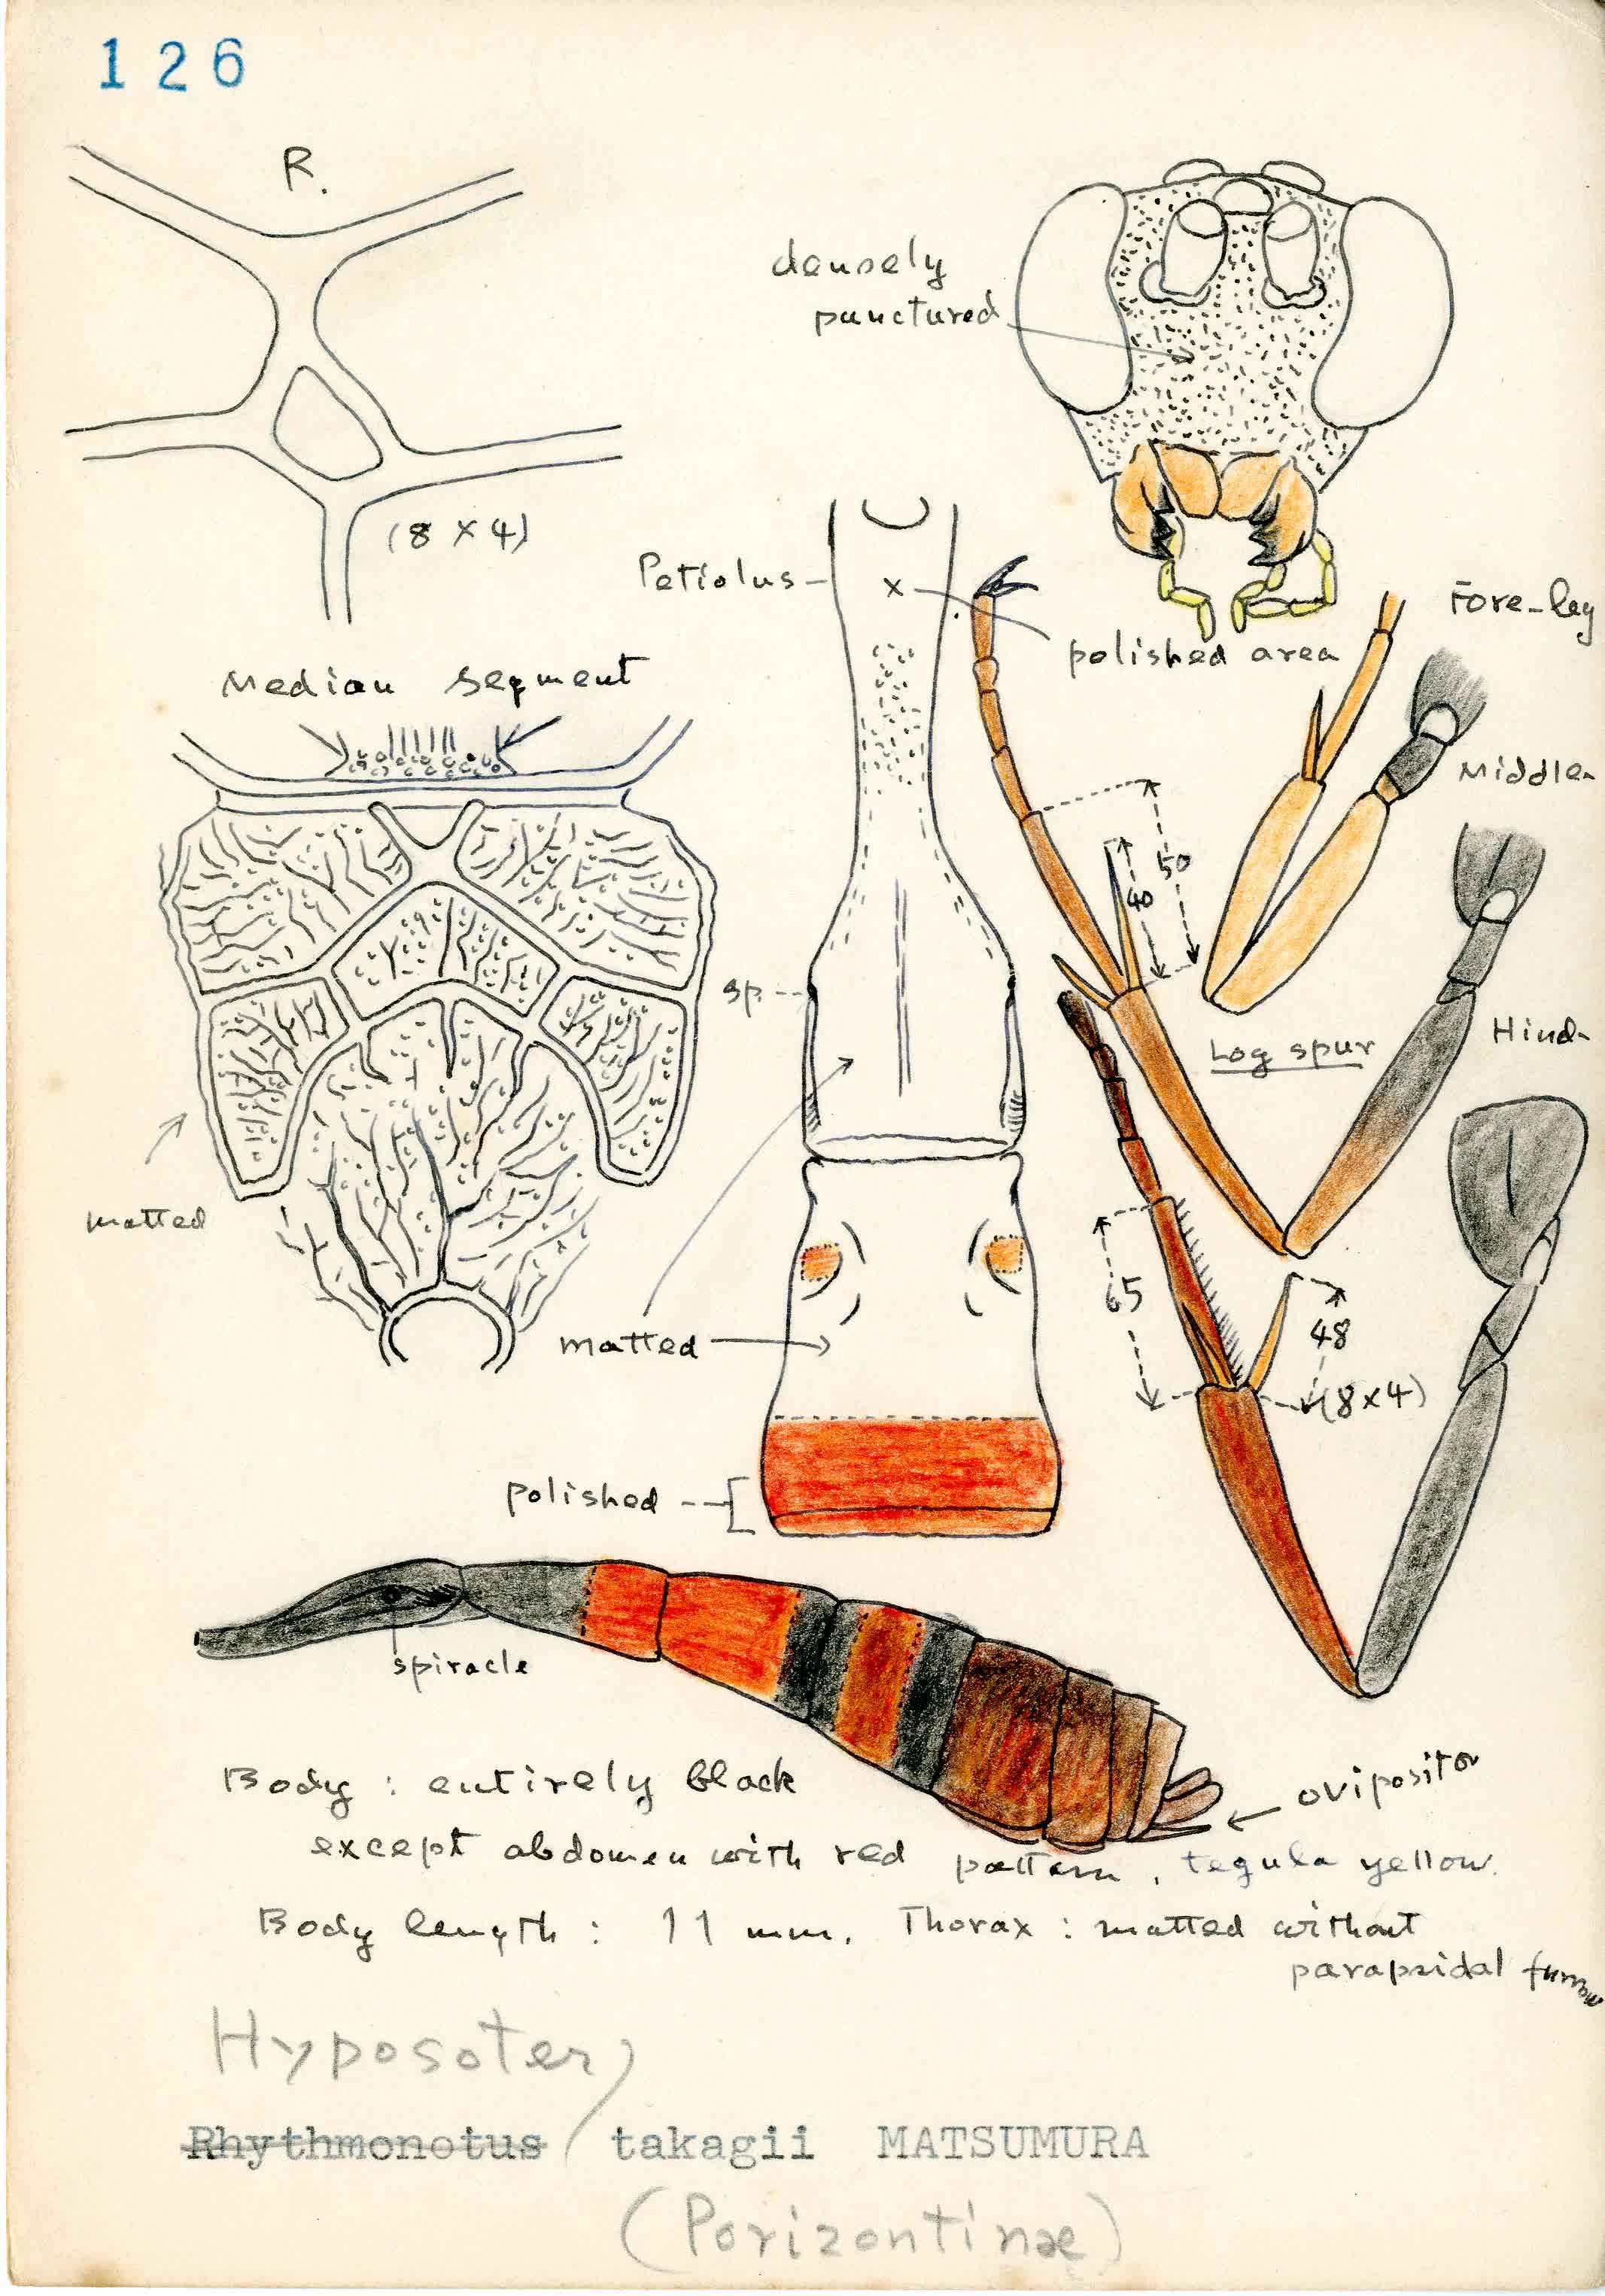 126
R.
(8 × 4)
densely
punctured
Petiolus
x
polished area
Fore-leg
Middle-
Hind-
Median segment
50
40
sp.
Log spur
matted
65
48
(8×4)
matted
polished
spiracle
ovipositor
Body : entirely black
except abdomen with red pattern, tegula yellow.
Body length : 11 mm. Thorax : matted without
parapsidal furrow
Hyposoter
Rhythmonotus takagii MATSUMURA
(Porizontinæ)